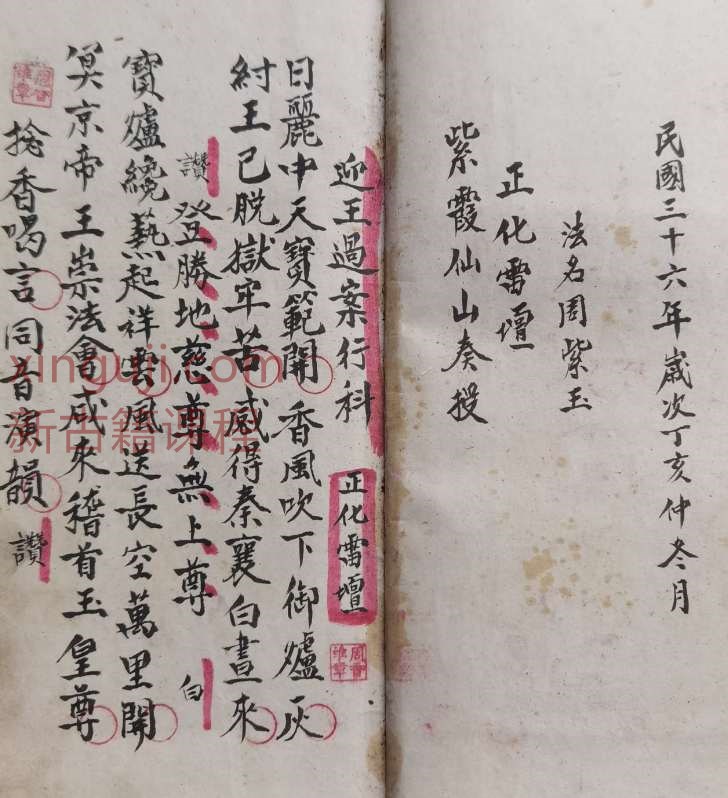 民國三十六年歲次丁亥仲冬月
法名周紫玉
正化雷壇
紫霞仙山奏授
迎王過案行科 正化雷壇
日麗中天寶範開 香風吹下御爐灰
紂王已脫獄牢苦 感得秦襄白晝來
讚 登勝地慈尊無上尊 白
寶爐纔爇起祥雲風送長空萬里開
冥京帝王崇法會咸來稽首玉皇尊
捻香喝言同音演韻 讚
xinguji.com
新古籍课程